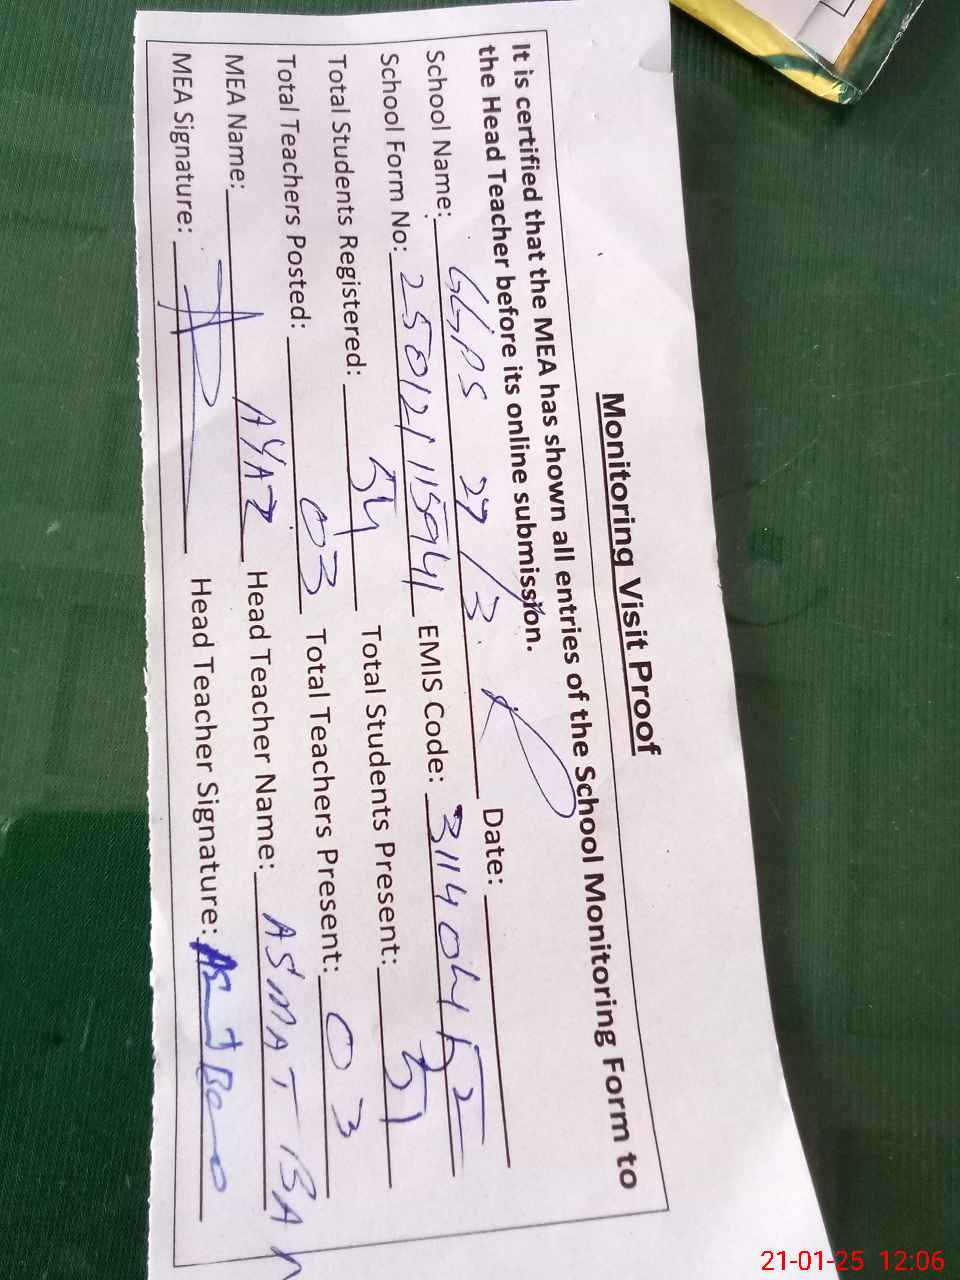 Monitoring Visit Proof
It is certified that the MEA has shown all entries of the School Monitoring Form to
the Head Teacher before its online submission.
School Name: GGPS 27/3. Date:
School Form No: 25012115941 EMIS Code: 31140452
Total Students Registered: 54 Total Students Present: 51
Total Teachers Posted: 03 Total Teachers Present: 03
MEA Name: AYAZ Head Teacher Name: ASMAT BAN
MEA Signature: Head Teacher Signature:
21-01-25 12:06